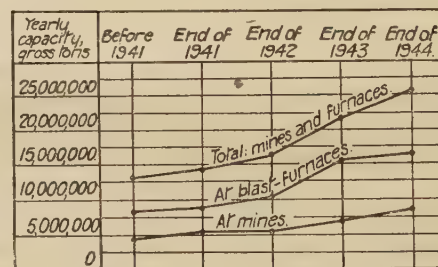 Yearly
capacity,
gross tons
Before
1941
End of
1941
End of
1942
End of
1943
End of
1944.
25,000,000
20,000,000
15,000,000
10,000,000
5,000,000
0
Total: mines and furnaces.
At blast-furnaces.
At mines.